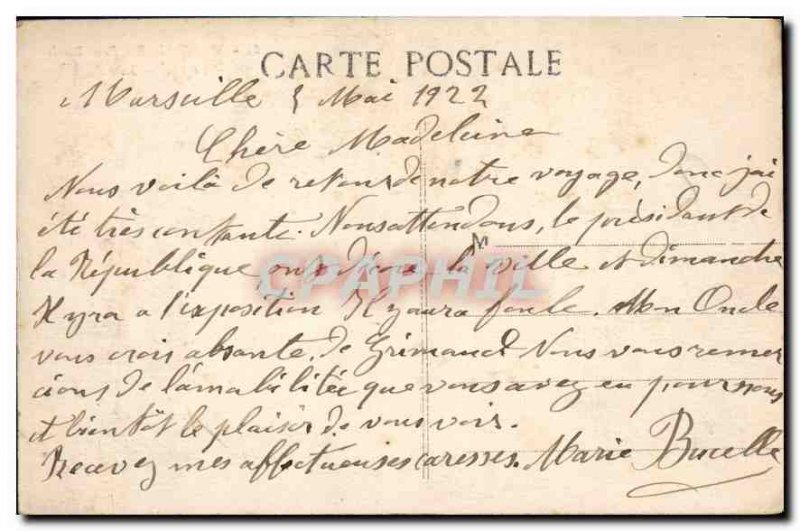 CARTE POSTALE
Marseille 5 Mai 1922
Chère Madeleine
Nous voilà de retour de notre voyage, donc j'ai
été très contante. Nous attendons, le présidant de
la République on décore la ville et dimanche
Il yra a l'exposition Il yaura foule. Mon Oncle
vous crois absante, de Grimaud Nous vous remer
cions de l'amabilitée que vous avez eu pour nous
et bientôt le plaisir de vous voir.
Recevez mes affectueuses caresses. Marie Bucelle
CPAPHIL